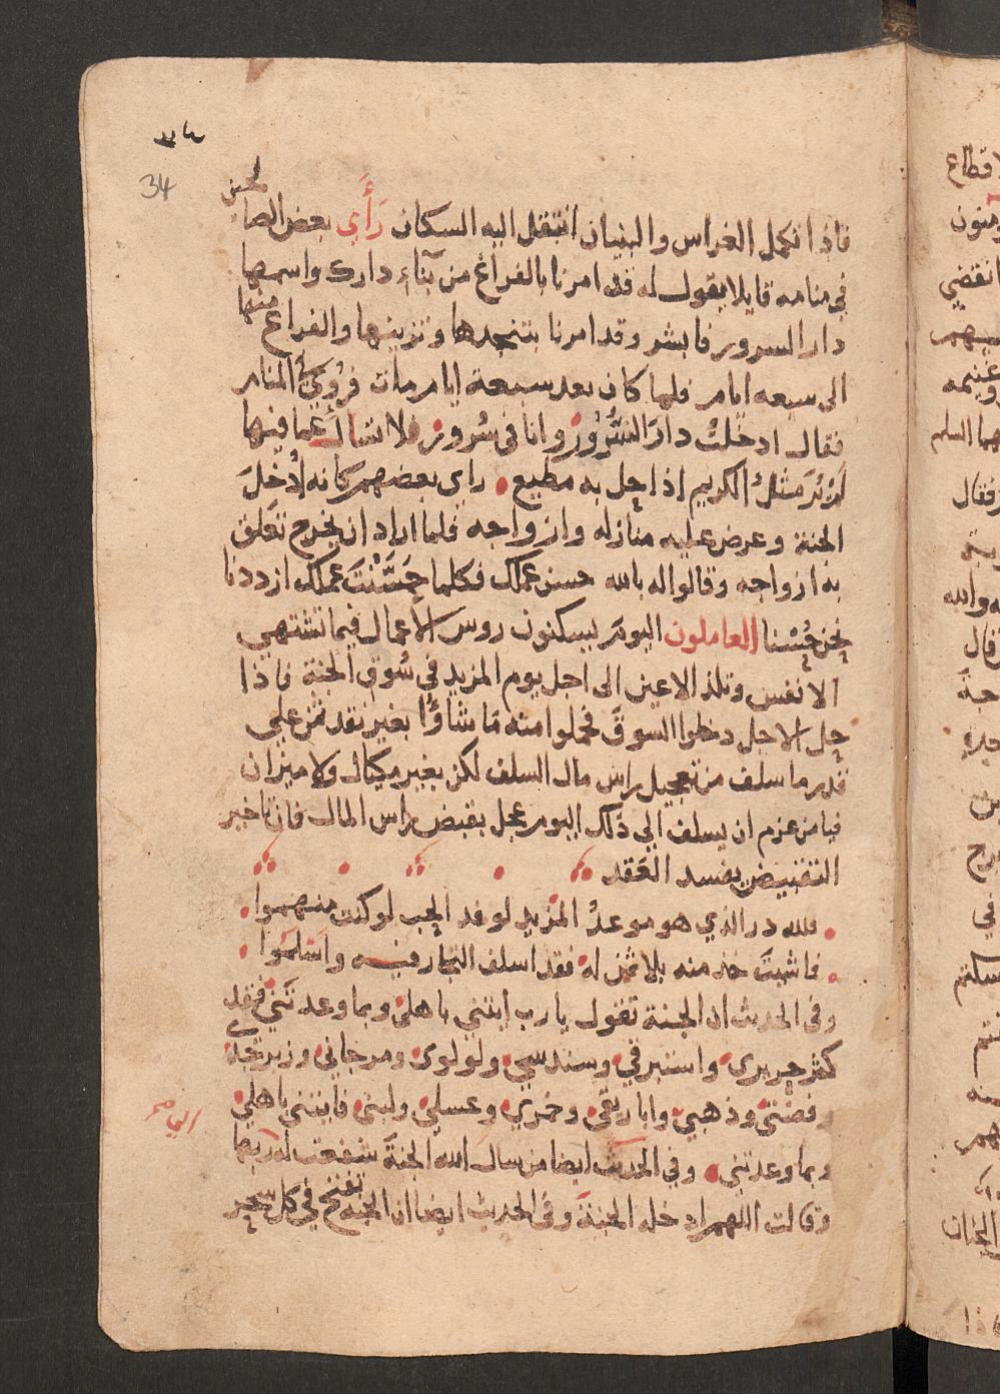 ٣٤
34
فاذا تكمل الغراس والبنيان انتقل اليه السكان رَأَي بعض الصالحين
في منامه قايلا يقول له قد امرنا بالفراغ من بناء دارك واسمها
دار السرور فابشر وقد امرنا بتنجيدها وتزيينها والفراغ منها
الى سبعه ايام فلما كان بعد سبعة ايام مات فرُوي في المنام
فقال ادخلتُ دارَ السُّرُورْ وانا في سُرورْ فلا تسالْ عما فيها
لَمْ يُرَ مثلُ الكريم اذا حل به مطيع راي بعضهم كانه اُدْخلَ
الجنة وعرض عليه منازله وازواجه فلما اراد ان يخرج تعلق
به ازواجه وقالوا له بالله حسن عملك فكلما حَسَّنْتَ عملك ازددنا
نحن حُسْنا العاملون اليوم يسكنون روس الاعمال فيما تشتهي
الانفس وتلذ الاعين الى اجل يوم المزيد في سُوق الجنة فاذا
حل الاجل دخلوا السوقَ فحملوا منه مَا شاؤا بغير نقد ثمن علي
قدر ما سلف من تعجيل راس مال السلف لكن بغير مكيال ولا ميزان
فيا من عزم ان يسلف الي ذلك اليوم عجل بقبض راس المال فان تاخير
التقبيض يفسد العَقد
فلله در الذي هو موعدُ المزيد لوفد الحب لو كنت منهموا
فما شيتَ خذ منه بلا ثمن له فقد اسلف التجار فيه واسلموا
وفي الحديث ان الجنة تقول يا رب ايتني باهلي وبما وعدتني فقد
كثر حريري واستبرقي وسندسي ولولوي ومرجاني وزبرجدي
وفضتي وذهبي واباريقي وخمري وعسلي ولبني فايتني باهلي
وبما وعدتني وفي الحديث ايضا من سال الله الجنةَ شفعت له ربها
وقالت اللهم ادخله الجنةَ وفي الحديث ايضا ان الجنة تفتح في كل سحر